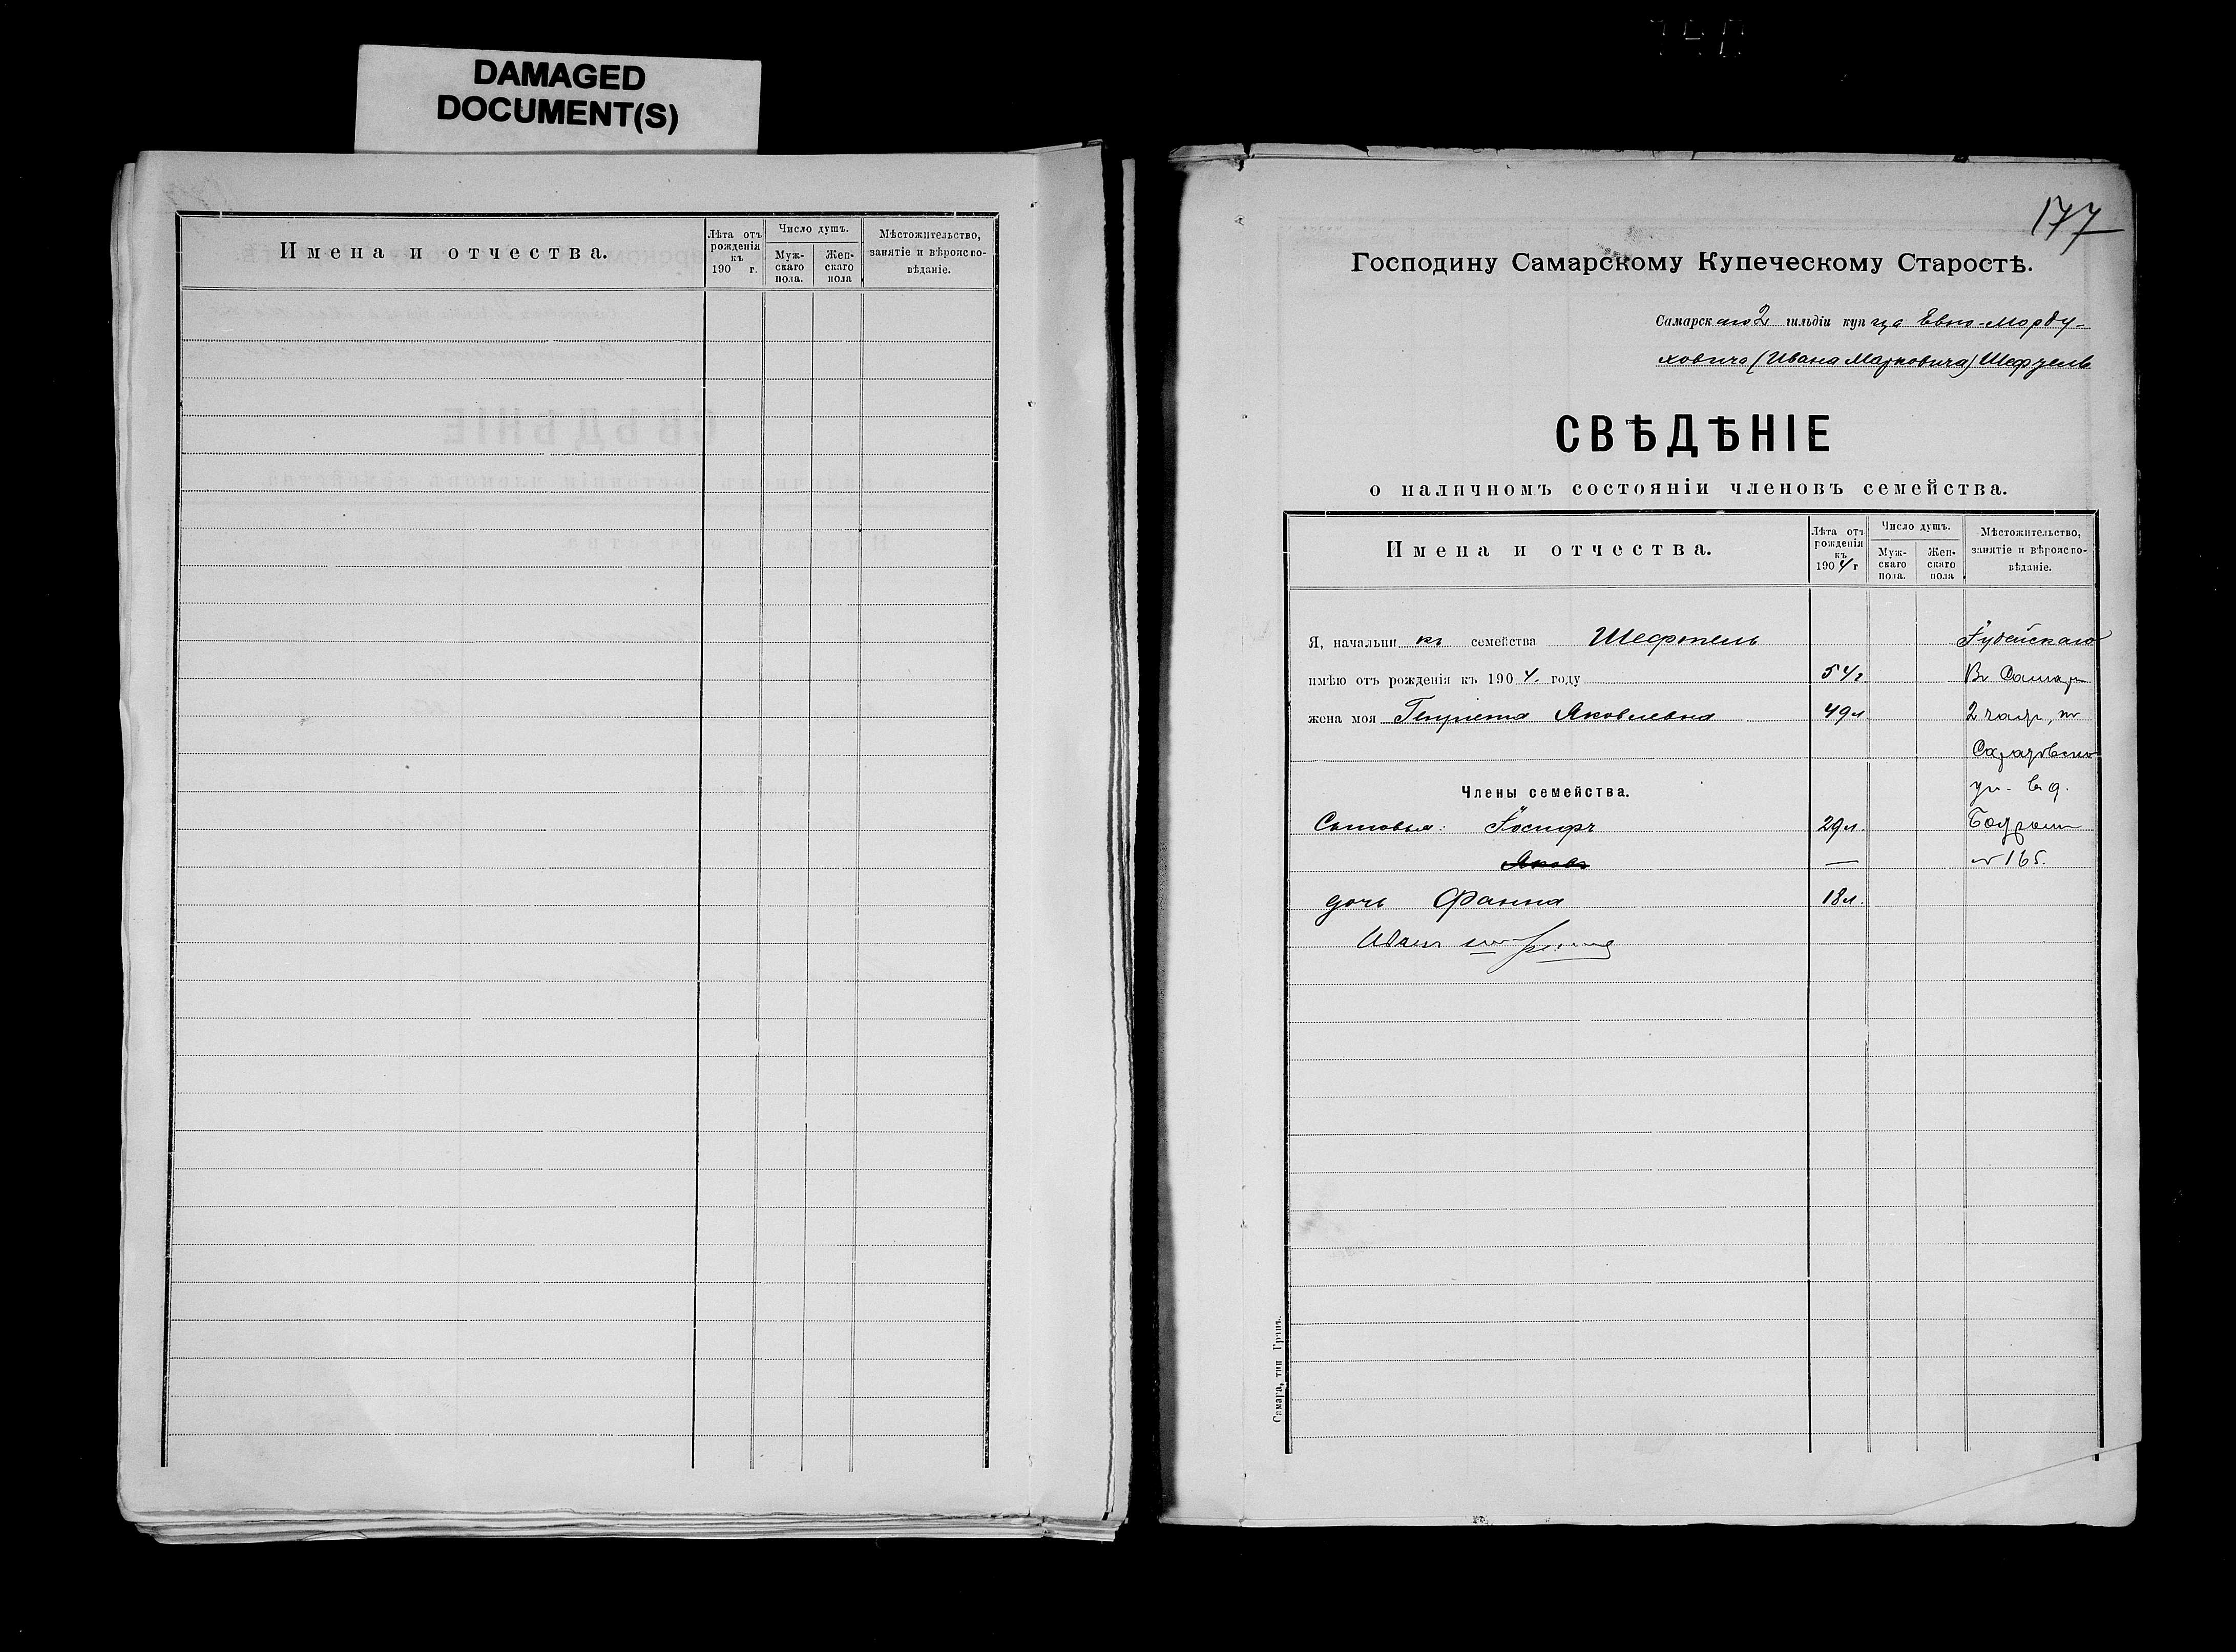 DAMAGED
DOCUMENT(S)
Имена и отчества.
Лѣта отъ рожденія къ 190 г.
Число душъ.
Мужскаго пола.
Женскаго пола
Мѣстожительство, занятіе и вѣроисповѣданіе.
177
Господину Самарскому Купеческому Старостѣ.
Самарскаго 2 гильдіи купца Евно-Морду-
ховича (Ивана Марковича) Шефтель
СВѢДѢНІЕ
о наличномъ состояніи членовъ семейства.
Имена и отчества.
Лѣта отъ рожденія къ 1904 г
Число душъ.
Мужскаго пола.
Женскаго пола
Мѣстожительство, занятіе и вѣроисповѣданіе.
Я, начальникъ семейства Шефтель Іудейскаго
имѣю отъ рожденія къ 1904. году 54 г Въ Самар
жена моя Генриета Яковлевна 49 л 2 части, по
Саратовско
Члены семейства. ул. въ д.
Сыновья: Іосифъ 29 л.
Яковъ — № 165.
дочь Фанна 18 л.
Иванъ
Самара, тип. Гранъ.